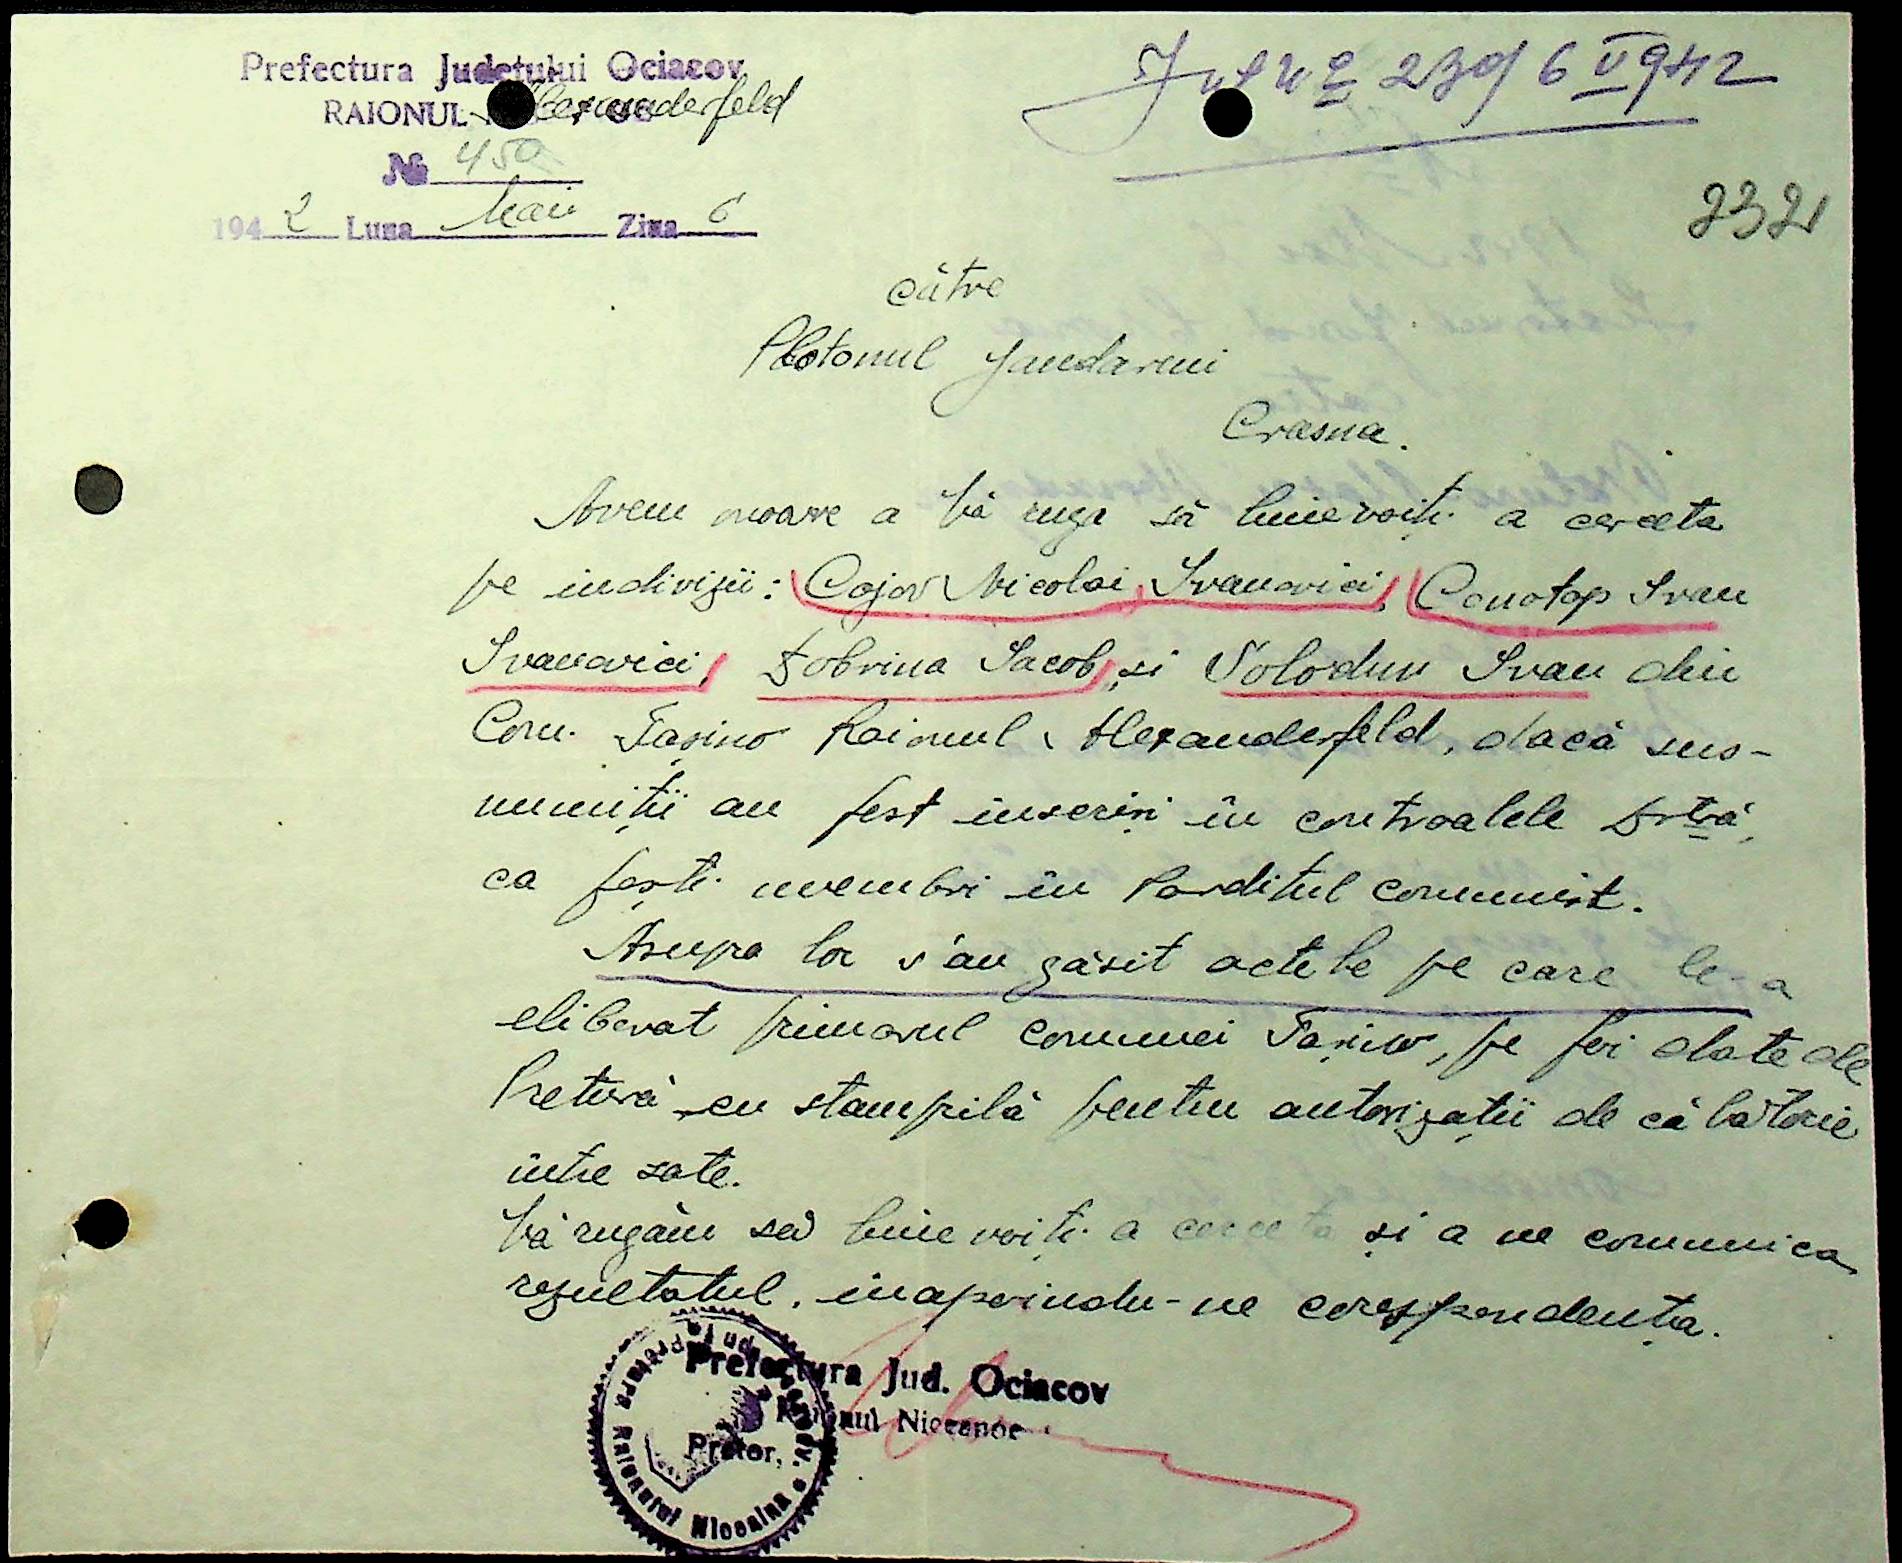 Prefectura Județului Ociacov
RAIONUL Alexanderfeld
№ 450
1942 Luna Mai Ziua 6
230/ 6 V 942
232
către
Plotonul Jandarmi
Crasna.
Avem onoare a Vă ruga să binevoiți a cerceta
pe indivizii: Cojov Nicolai Ivanovici, Conotop Ivan
Ivanovici, Dobrina Iacob, și Solodun Ivan din
Com. Tașino Raionul Alexanderfeld, dacă sus-
numiții au fost înscriși în controalele Dvtră,
ca foști membri în Parditul comunist.
Asupra lor s'au găsit actele pe care le-a
eliberat primarul comunei Tașino, pe foi date de
Pretură cu stampilă pentru autorizații de călătorie
între sate.
Vă rugăm să binevoiți a cerceta și a ne comunica
rezultatul, înapoindu-ne corespondența.
Prefectura Jud. Ociacov
Raionul
Pretor,
Pretura Raionului